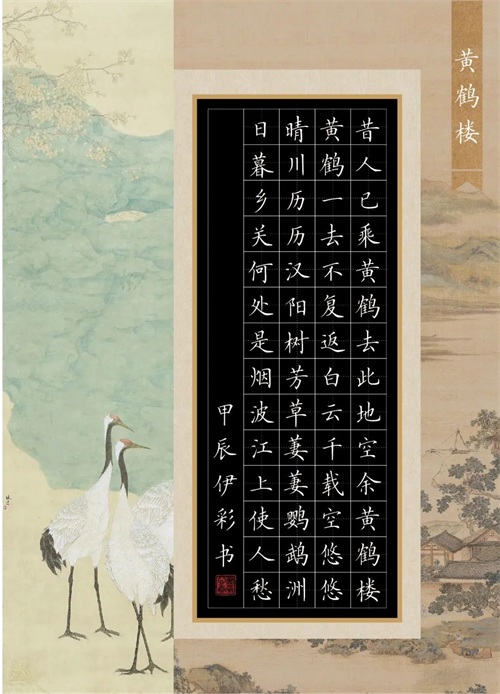 黄鹤楼
昔人已乘黄鹤去此地空余黄鹤楼
黄鹤一去不复返白云千载空悠悠
晴川历历汉阳树芳草萋萋鹦鹉洲
日暮乡关何处是烟波江上使人愁
甲辰伊彩书